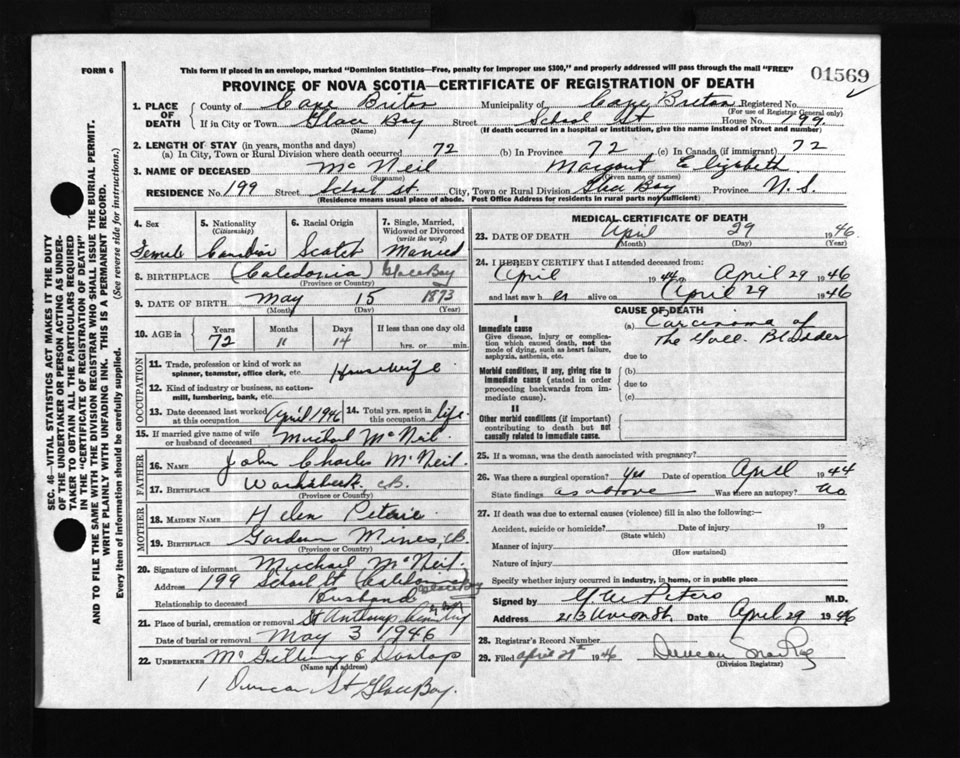 FORM 6
This form if placed in an envelope, marked "Dominion Statistics—Free, penalty for improper use $300," and properly addressed will pass through the mail "FREE"
01569
PROVINCE OF NOVA SCOTIA—CERTIFICATE OF REGISTRATION OF DEATH
1. PLACE OF DEATH
County of Cape Briton Municipality of Cape Breton Registered No.
(For use of Registrar General only)
If in City or Town Glace Bay Street School St House No. 199
(Name) (If death occurred in a hospital or institution, give the name instead of street and number)
2. LENGTH OF STAY (in years, months and days)
(a) In City, Town or Rural Division where death occurred 72 (b) In Province 72 (c) In Canada (if immigrant) 72
3. NAME OF DECEASED Mc Neil Margaret Elizabeth
(Surname) (Given name or names)
RESIDENCE No. 199 Street School St. City, Town or Rural Division Glace Bay Province N. S.
(Residence means usual place of abode. Post Office Address for residents in rural parts not sufficient)
4. Sex 5. Nationality (Citizenship) 6. Racial Origin 7. Single, Married, Widowed or Divorced (write the word)
Female Canadian Scotch Married
8. BIRTHPLACE (Caledonia) Glace Bay
(Province or Country)
9. DATE OF BIRTH May 15 1873
(Month) (Day) (Year)
10. AGE in Years Months Days If less than one day old
72 11 14 hrs. or min.
OCCUPATION
11. Trade, profession or kind of work as spinner, teamster, office clerk, etc. Housewife
12. Kind of industry or business, as cotton-mill, lumbering, bank, etc.
13. Date deceased last worked at this occupation April 1946 14. Total yrs. spent in this occupation life
15. If married give name of wife or husband of deceased Michael McNeil.
FATHER
16. NAME John Charles McNeil.
17. BIRTHPLACE C.B.
(Province or Country)
MOTHER
18. MAIDEN NAME Helen
19. BIRTHPLACE Gardner Mines, C.B.
(Province or Country)
20. Signature of informant Michael McNeil.
Address 199 School St Caledonia Glace Bay
Relationship to deceased Husband
21. Place of burial, cremation or removal St Anthonys Cemetery
Date of burial or removal May 3 1946
22. UNDERTAKER McGillivray & Dunlap
(Name and address)
1 Duncan St Glace Bay.
MEDICAL CERTIFICATE OF DEATH
23. DATE OF DEATH April 29 1946
(Month) (Day) (Year)
24. I HEREBY CERTIFY that I attended deceased from:
April 1944 to April 29 1946
and last saw h er alive on April 29 1946
CAUSE OF DEATH
I
Immediate cause
Give disease, injury or complication which caused death, not the mode of dying, such as heart failure, asphyxia, asthenia, etc.
(a) Carcinoma of
The Gall. Bladder
due to
Morbid conditions, if any, giving rise to immediate cause (stated in order proceeding backwards from immediate cause).
(b)
due to
(c)
II
Other morbid conditions (if important) contributing to death but not causally related to immediate cause.
25. If a woman, was the death associated with pregnancy?
26. Was there a surgical operation? Yes Date of operation April 1944
State findings as above Was there an autopsy? No
27. If death was due to external causes (violence) fill in also the following:—
Accident, suicide or homicide? Date of injury 19
(State which)
Manner of injury
(How sustained)
Nature of injury
Specify whether injury occurred in industry, in home, or in public place
Signed by Peters M.D.
Address 213 Union St. Date April 29 1946
28. Registrar's Record Number
29. Filed April 29th 1946 Duncan MacRae
(Division Registrar)
SEC. 46—VITAL STATISTICS ACT MAKES IT THE DUTY
OF THE UNDERTAKER OR PERSON ACTING AS UNDER-
TAKER TO OBTAIN ALL THE PARTICULARS REQUIRED
IN THE "CERTIFICATE OF REGISTRATION OF DEATH"
AND TO FILE THE SAME WITH THE DIVISION REGISTRAR WHO SHALL ISSUE THE BURIAL PERMIT.
WRITE PLAINLY WITH UNFADING INK. THIS IS A PERMANENT RECORD.
Every item of information should be carefully supplied. (See reverse side for instructions.)